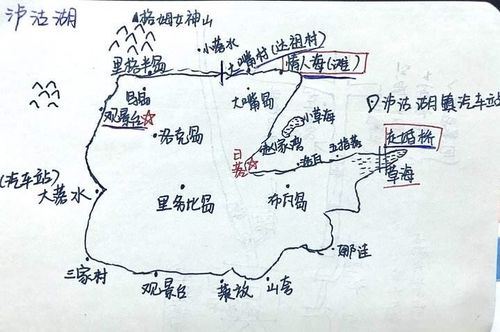 泸沽湖
格姆女神山
小落水
大嘴村(达祖村)
里格半岛
情人海(滩)
鸟岛
大嘴岛
观景台
洛克岛
小草海
泸沽湖镇汽车站
赵家湾
日落
洛白
五指落
走婚桥
草海
(汽车站)
大落水
里务比岛
布瓦岛
三家村
观景台
山舍